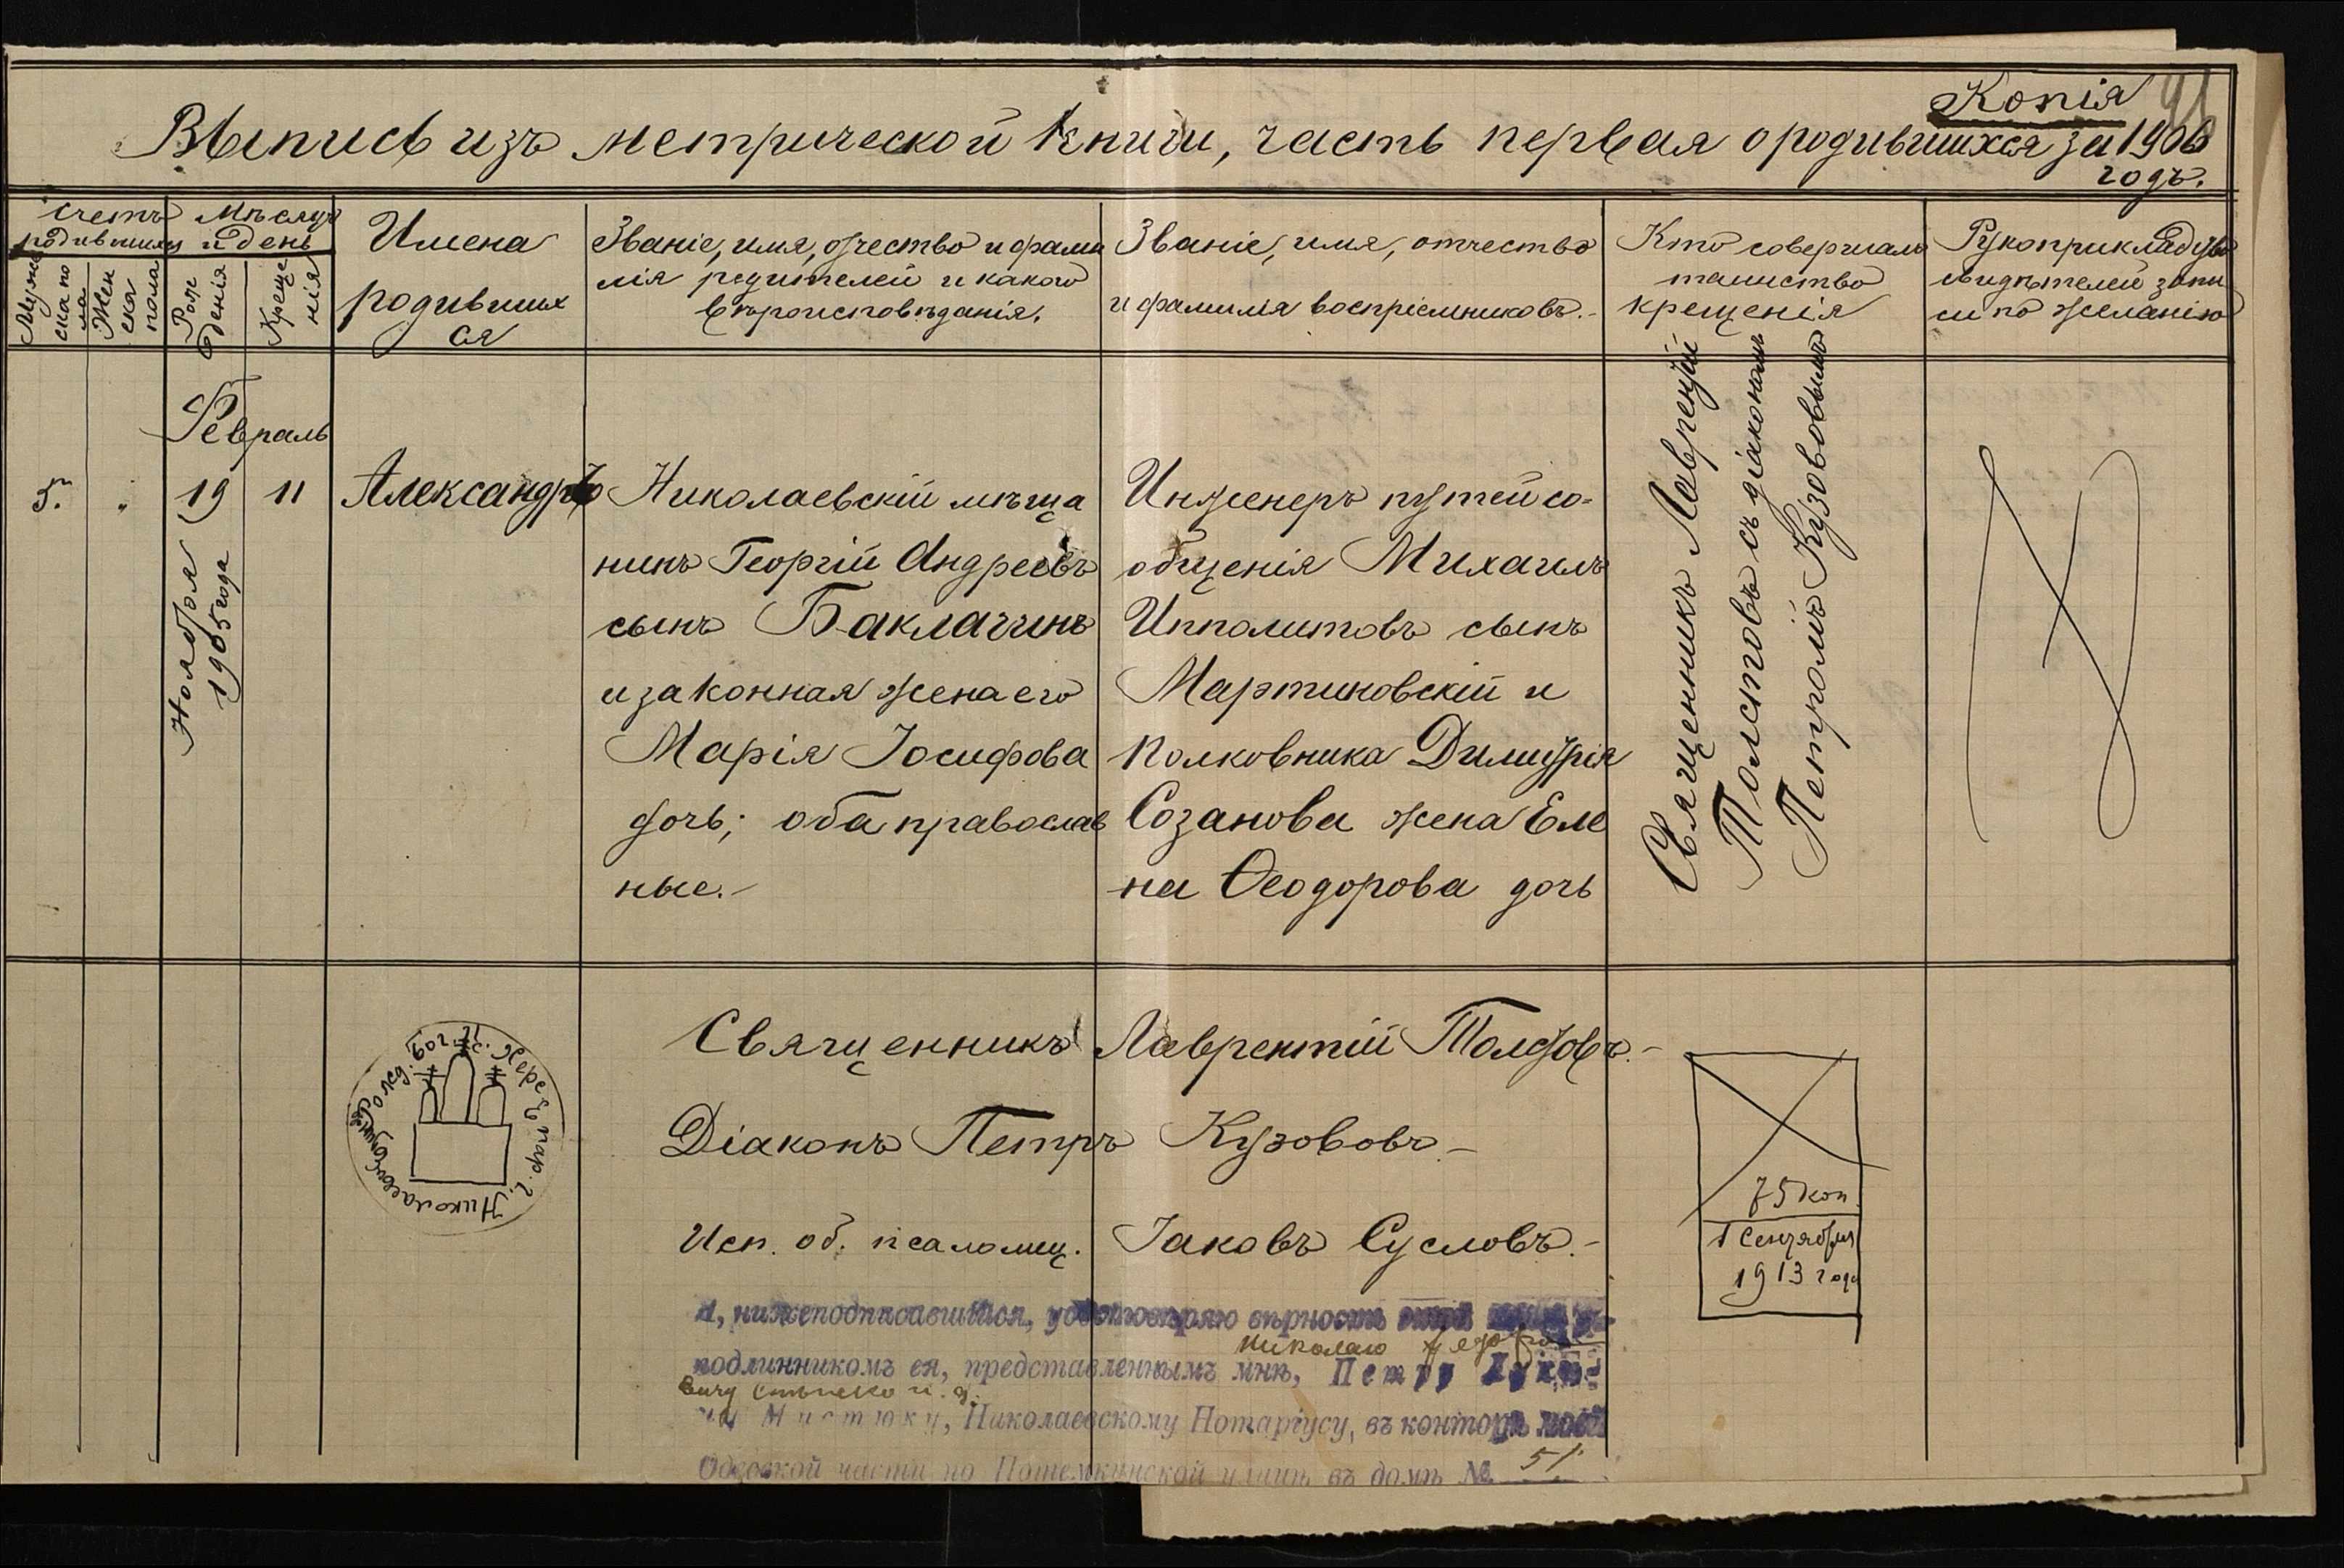 Копія
91
Выпись изъ метрической книги, часть первая о родившихся за 1906
годъ.
Счетъ
родившихся
Мужс
ска по
ла
Жен
ска
пола
Мѣсяцъ
и день
Рож
денія
Креще
нія
Имена
родивших
ся
Званіе, имя, отчество и фами
лія родителей и какого
вѣроисповѣданія.
Званіе, имя, отчество
и фамилія воспріемниковъ.-
Кто совершалъ
таинство
крещенія
Рукоприкладство
свидѣтелей запи
си по желанію
Февраль
5.
"
19
11
Ноября
1905 года
Александръ
Николаевскій мѣща
нинъ Георгій Андреевъ
сынъ Баклагинъ
и законная жена его
Марія Іосифова
дочь; оба православ
ные.-
Инженеръ путей со-
общенія Михаилъ
Ипполитовъ сынъ
Мартиновскій и
полковника Димитрія
Созанова жена Еле
на Ѳеодорова дочь
Священникъ Лаврентій
Толстовъ съ діакономъ
Петромъ Кузововымъ
Священникъ Лаврентій Толстовъ.-
Діаконъ Петръ Кузововъ.-
Исп. об. псаломщ. Іаковъ Сусловъ.-
75 коп
1 Сентября
1913 года
Я, нижеподписавшійся, удостовѣряю вѣрность этой
Николаю
подлинникомъ ея, представленнымъ мнѣ, Петру
вичу и. д.
Мистюку, Николаевскому Нотаріусу, въ конторѣ моей
Одесской части по Потемкинской улицѣ въ домѣ № 51